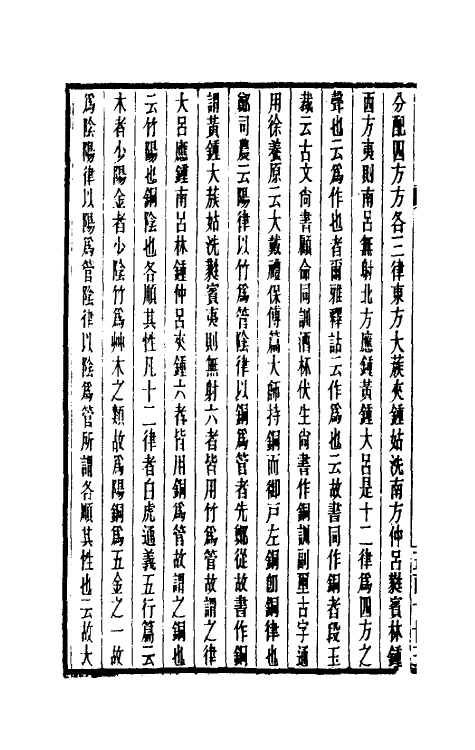 分配四方方各三律東方大蔟夾鍾姑洗南方仲呂蕤賓林鍾
西方夷則南呂無射北方應鍾黃鍾大呂是十二律爲四方之
聲也云爲作也者爾雅釋詁云作爲也云故書同作銅者段玉
裁云古文尙書顧命同訓酒杯伏生尙書作銅訓副璽古字通
用徐養原云大戴禮保傅篇大師持銅而御戶左銅卽銅律也
鄭司農云陽律以竹爲管陰律以銅爲管者先鄭從故書作銅
謂黃鍾大蔟姑洗蕤賓夷則無射六者皆用竹爲管故謂之律
大呂應鍾南呂林鍾仲呂夾鍾六者皆用銅爲管故謂之銅也
云竹陽也銅陰也各順其性凡十二律者白虎通義五行篇云
木者少陽金者少陰竹爲艸木之類故爲陽銅爲五金之一故
爲陰陽律以陽爲管陰律以陰爲管所謂各順其性也云故大